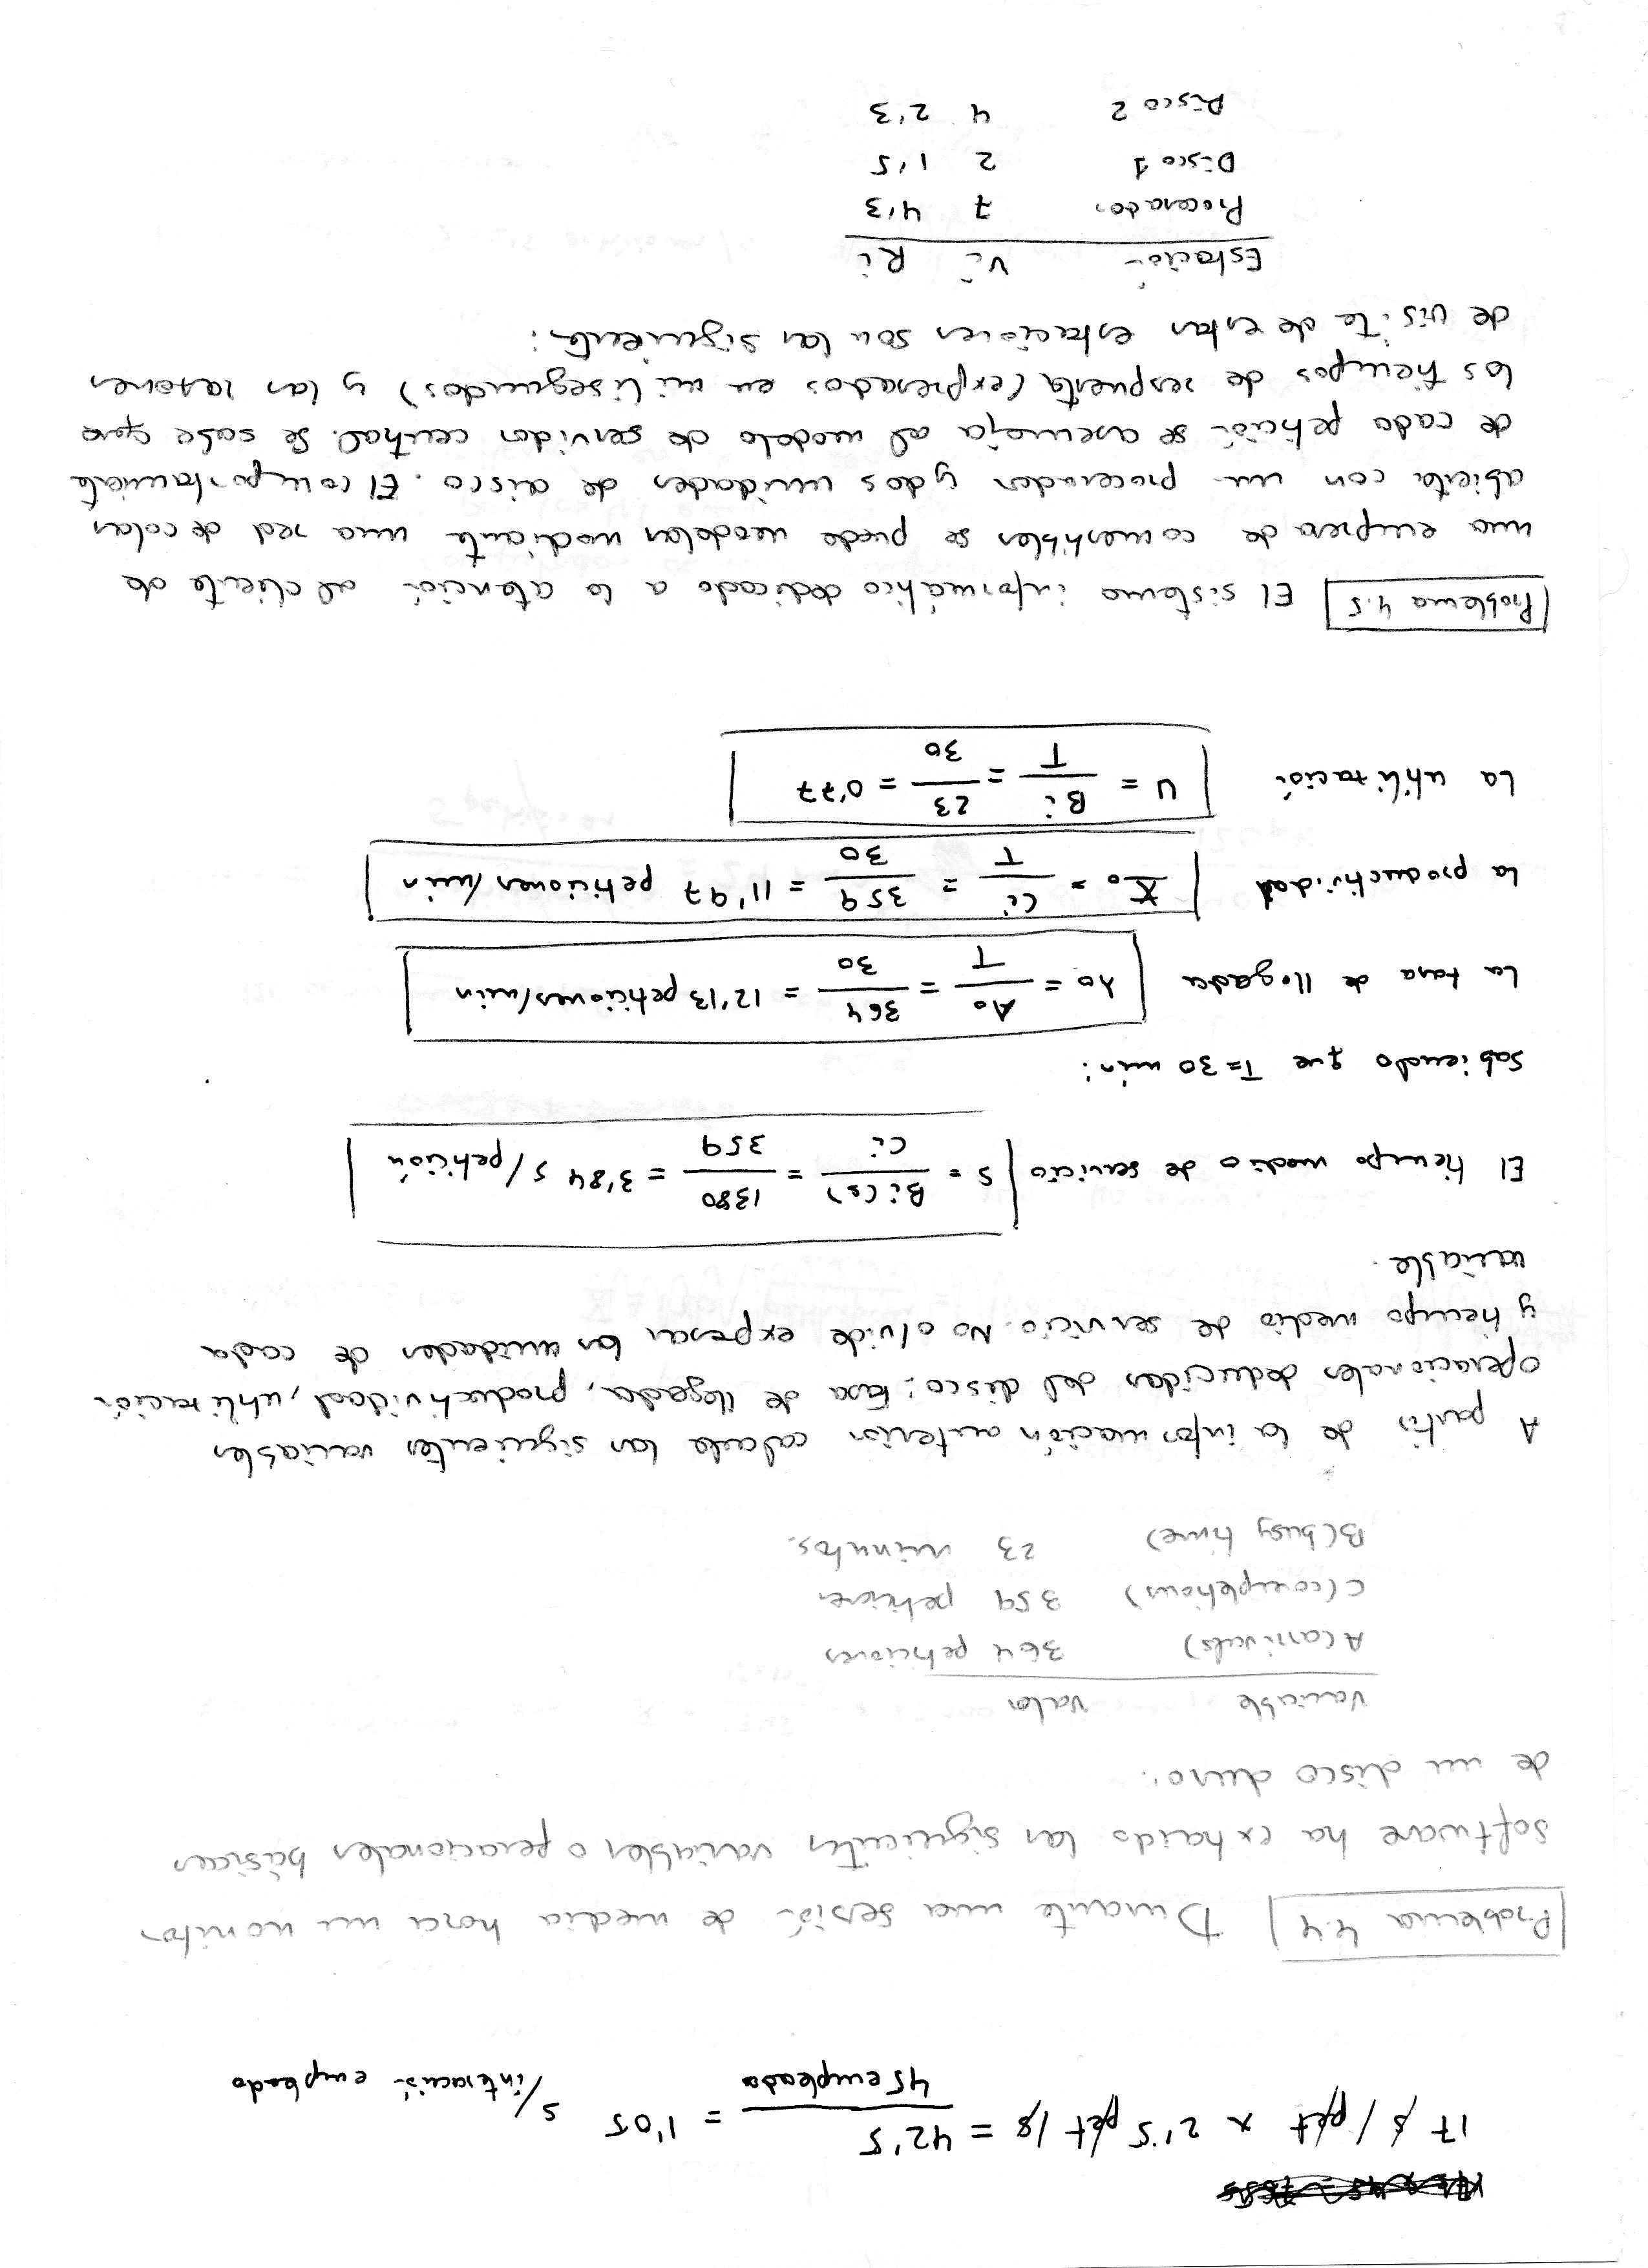 17 s/pet x 2'5 pet/s = 42'5 / 45 empleados = 1'05 s/interacción empleado
Problema 4.4 Durante una sesión de media hora un monitor
software ha extraido las siguientes variables operacionales básicas
de un disco duro:
Variable valor
A (arrivals) 364 peticiones
C (completions) 359 peticiones
B (busy time) 23 minutos.
A partir de la información anterior calcule las siguientes variables
operacionales deducidas del disco: tasa de llegada, productividad, utilización
y tiempo medio de servicio. No olvide expresar las unidades de cada
variable.
El tiempo medio de servicio S = Bi(s) / Ci = 1380 / 359 = 3'84 s/petición
Sabiendo que T=30 min:
La tasa de llegada λo = Ao / T = 364 / 30 = 12'13 peticiones/min
La productividad Xo = Ci / T = 359 / 30 = 11'97 peticiones/min
La utilización U = Bi / T = 23 / 30 = 0'77
Problema 4.5 El sistema informático dedicado a la atención al cliente de
una empresa de comestibles se puede modelar mediante una red de colas
abierta con un procesador y dos unidades de disco. El comportamiento
de cada petición se asemeja al modelo de servidor central. Se sabe que
los tiempos de respuesta (expresados en milisegundos) y las razones
de visita de estas estaciones son las siguientes:
Estación Vi Ri
Procesador 7 4'3
Disco 1 2 1'5
Disco 2 4 2'3